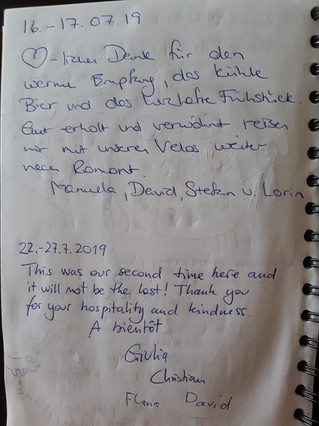 16.-17.07.19
♡-lichen Danke für den
warme Empfang, das kühle
Bier und das herzhafte Frühstück.
Gut erholt und verwöhnt reisen
wir mit unseren Velos weiter
nach Romont.
Manuela, David, Stefan u. Lorin
22.-27.7.2019
This was our second time here and
it will not be the last! Thank you
for your hospitality and kindness.
A bientôt
Giulia
Christian
Flavio David